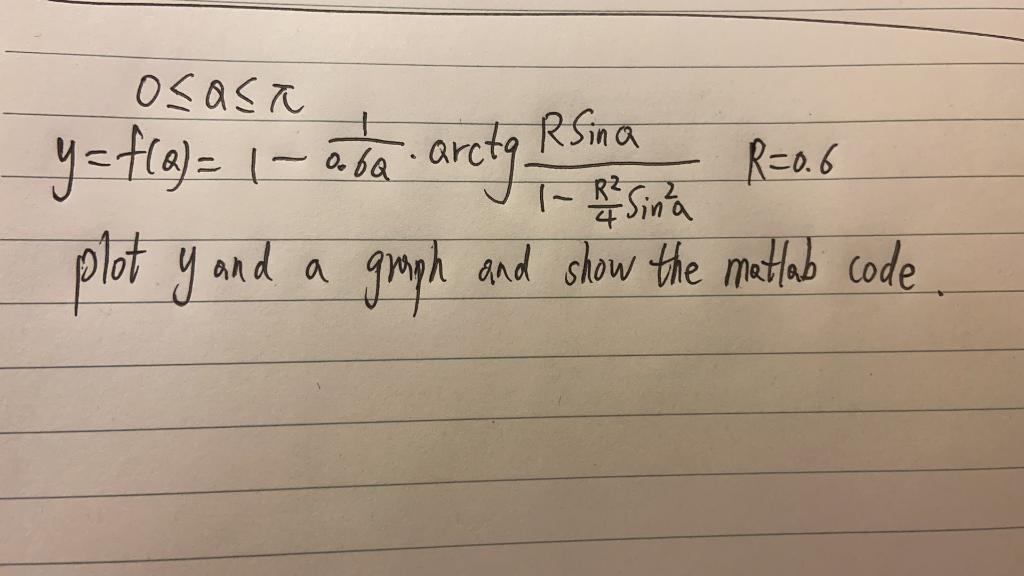 0 ≤ a ≤ π
y = f(a) = 1 - 1/0.6a · arctg R Sin a / 1 - R²/4 Sin²a R = 0.6
plot y and a graph and show the matlab code.